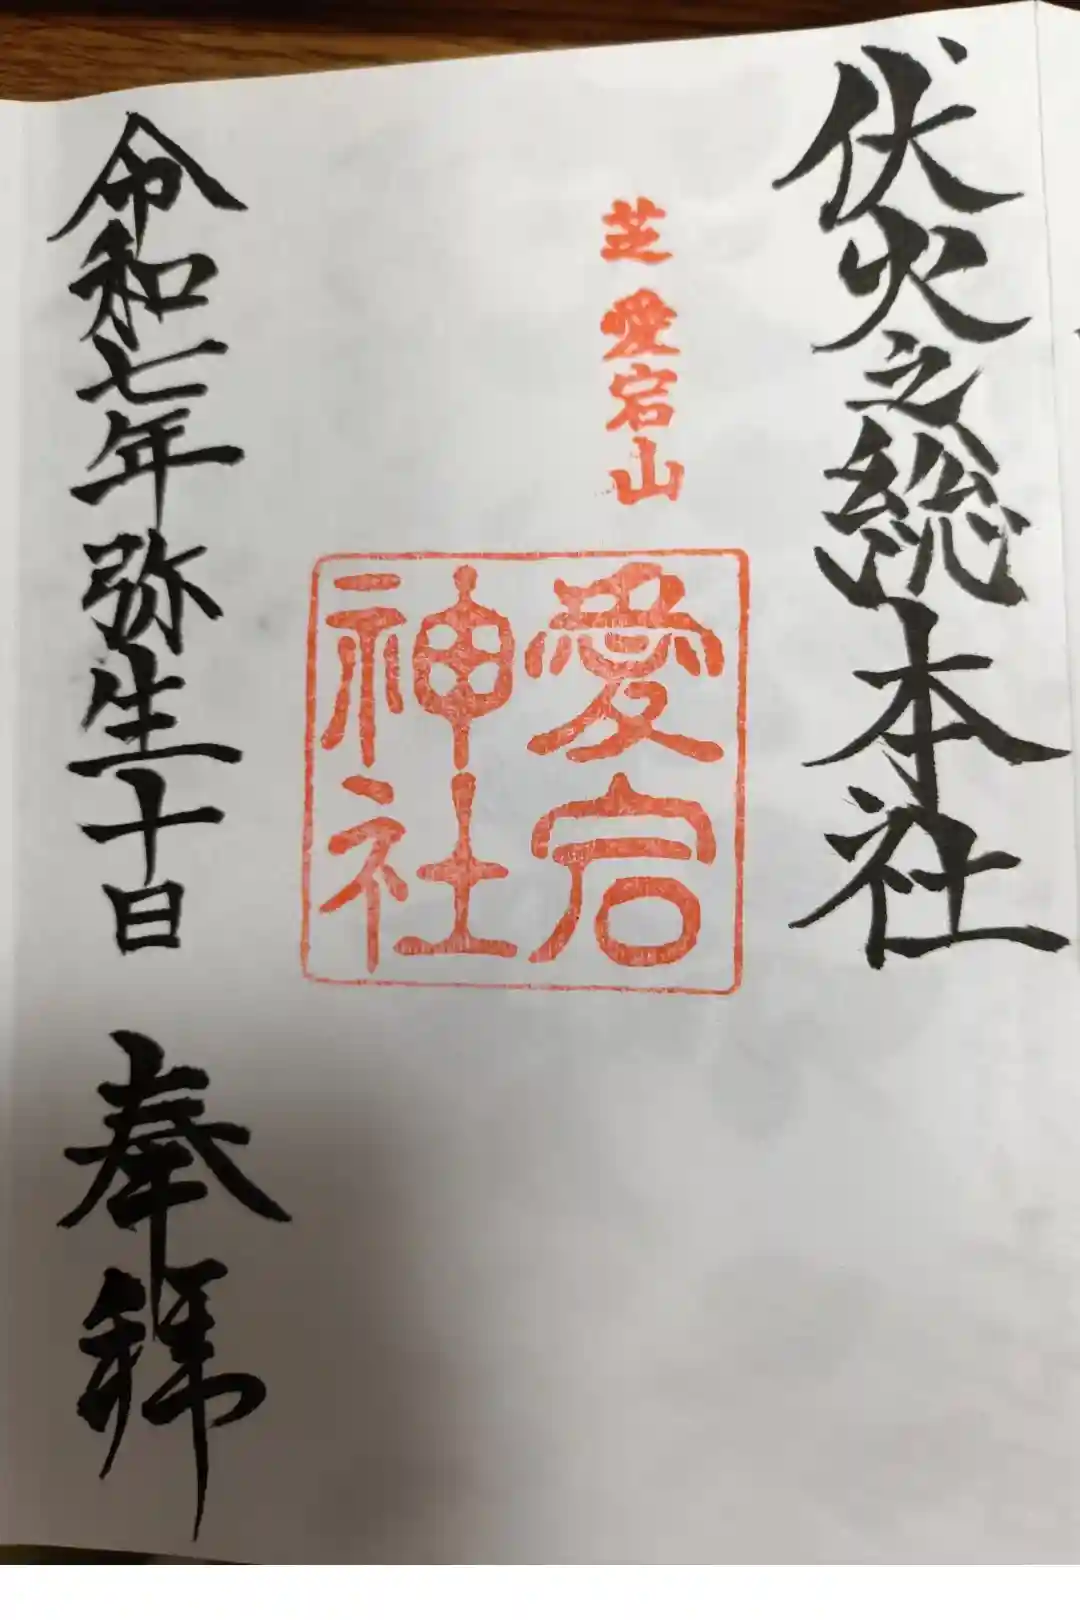 伏火之総本社
芝 愛宕山
愛宕
神社
令和七年弥生十日 奉拝